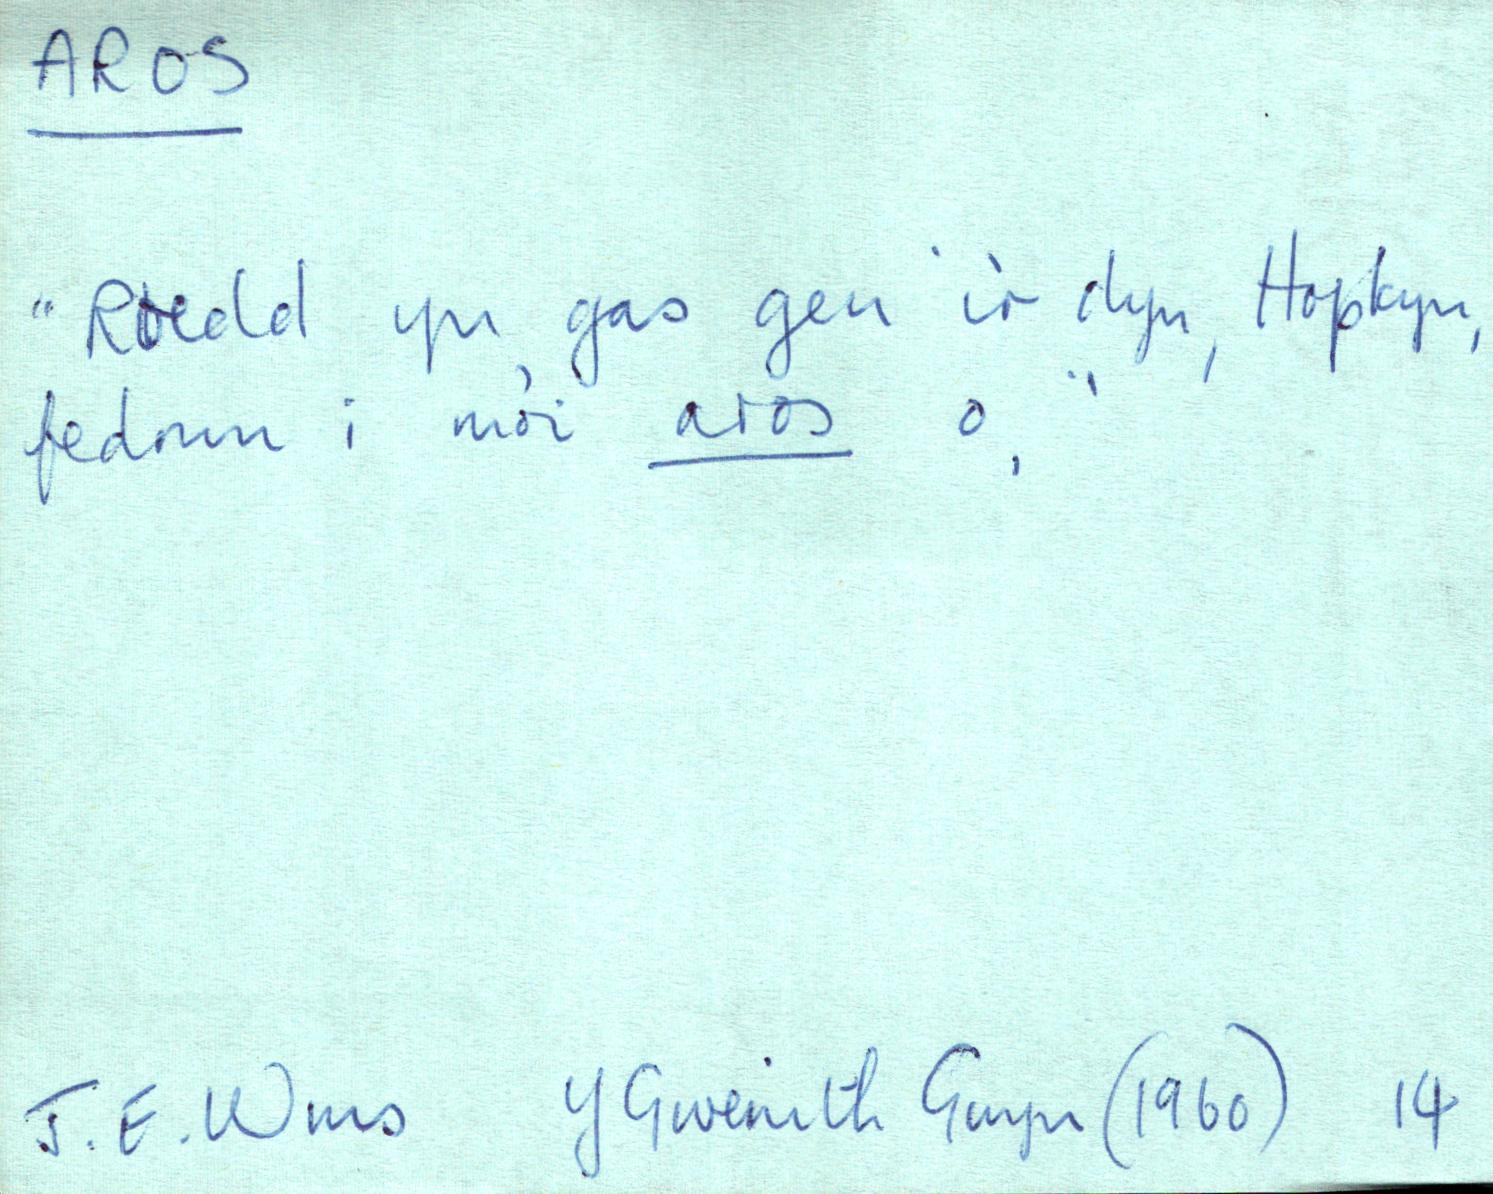 AROS
"Roedd yn gas gen i'r dyn, Hopkyn,
fedrwn i mo'i aros o,"
J. E. Wms Y Gwenith Gwyn (1960) 14